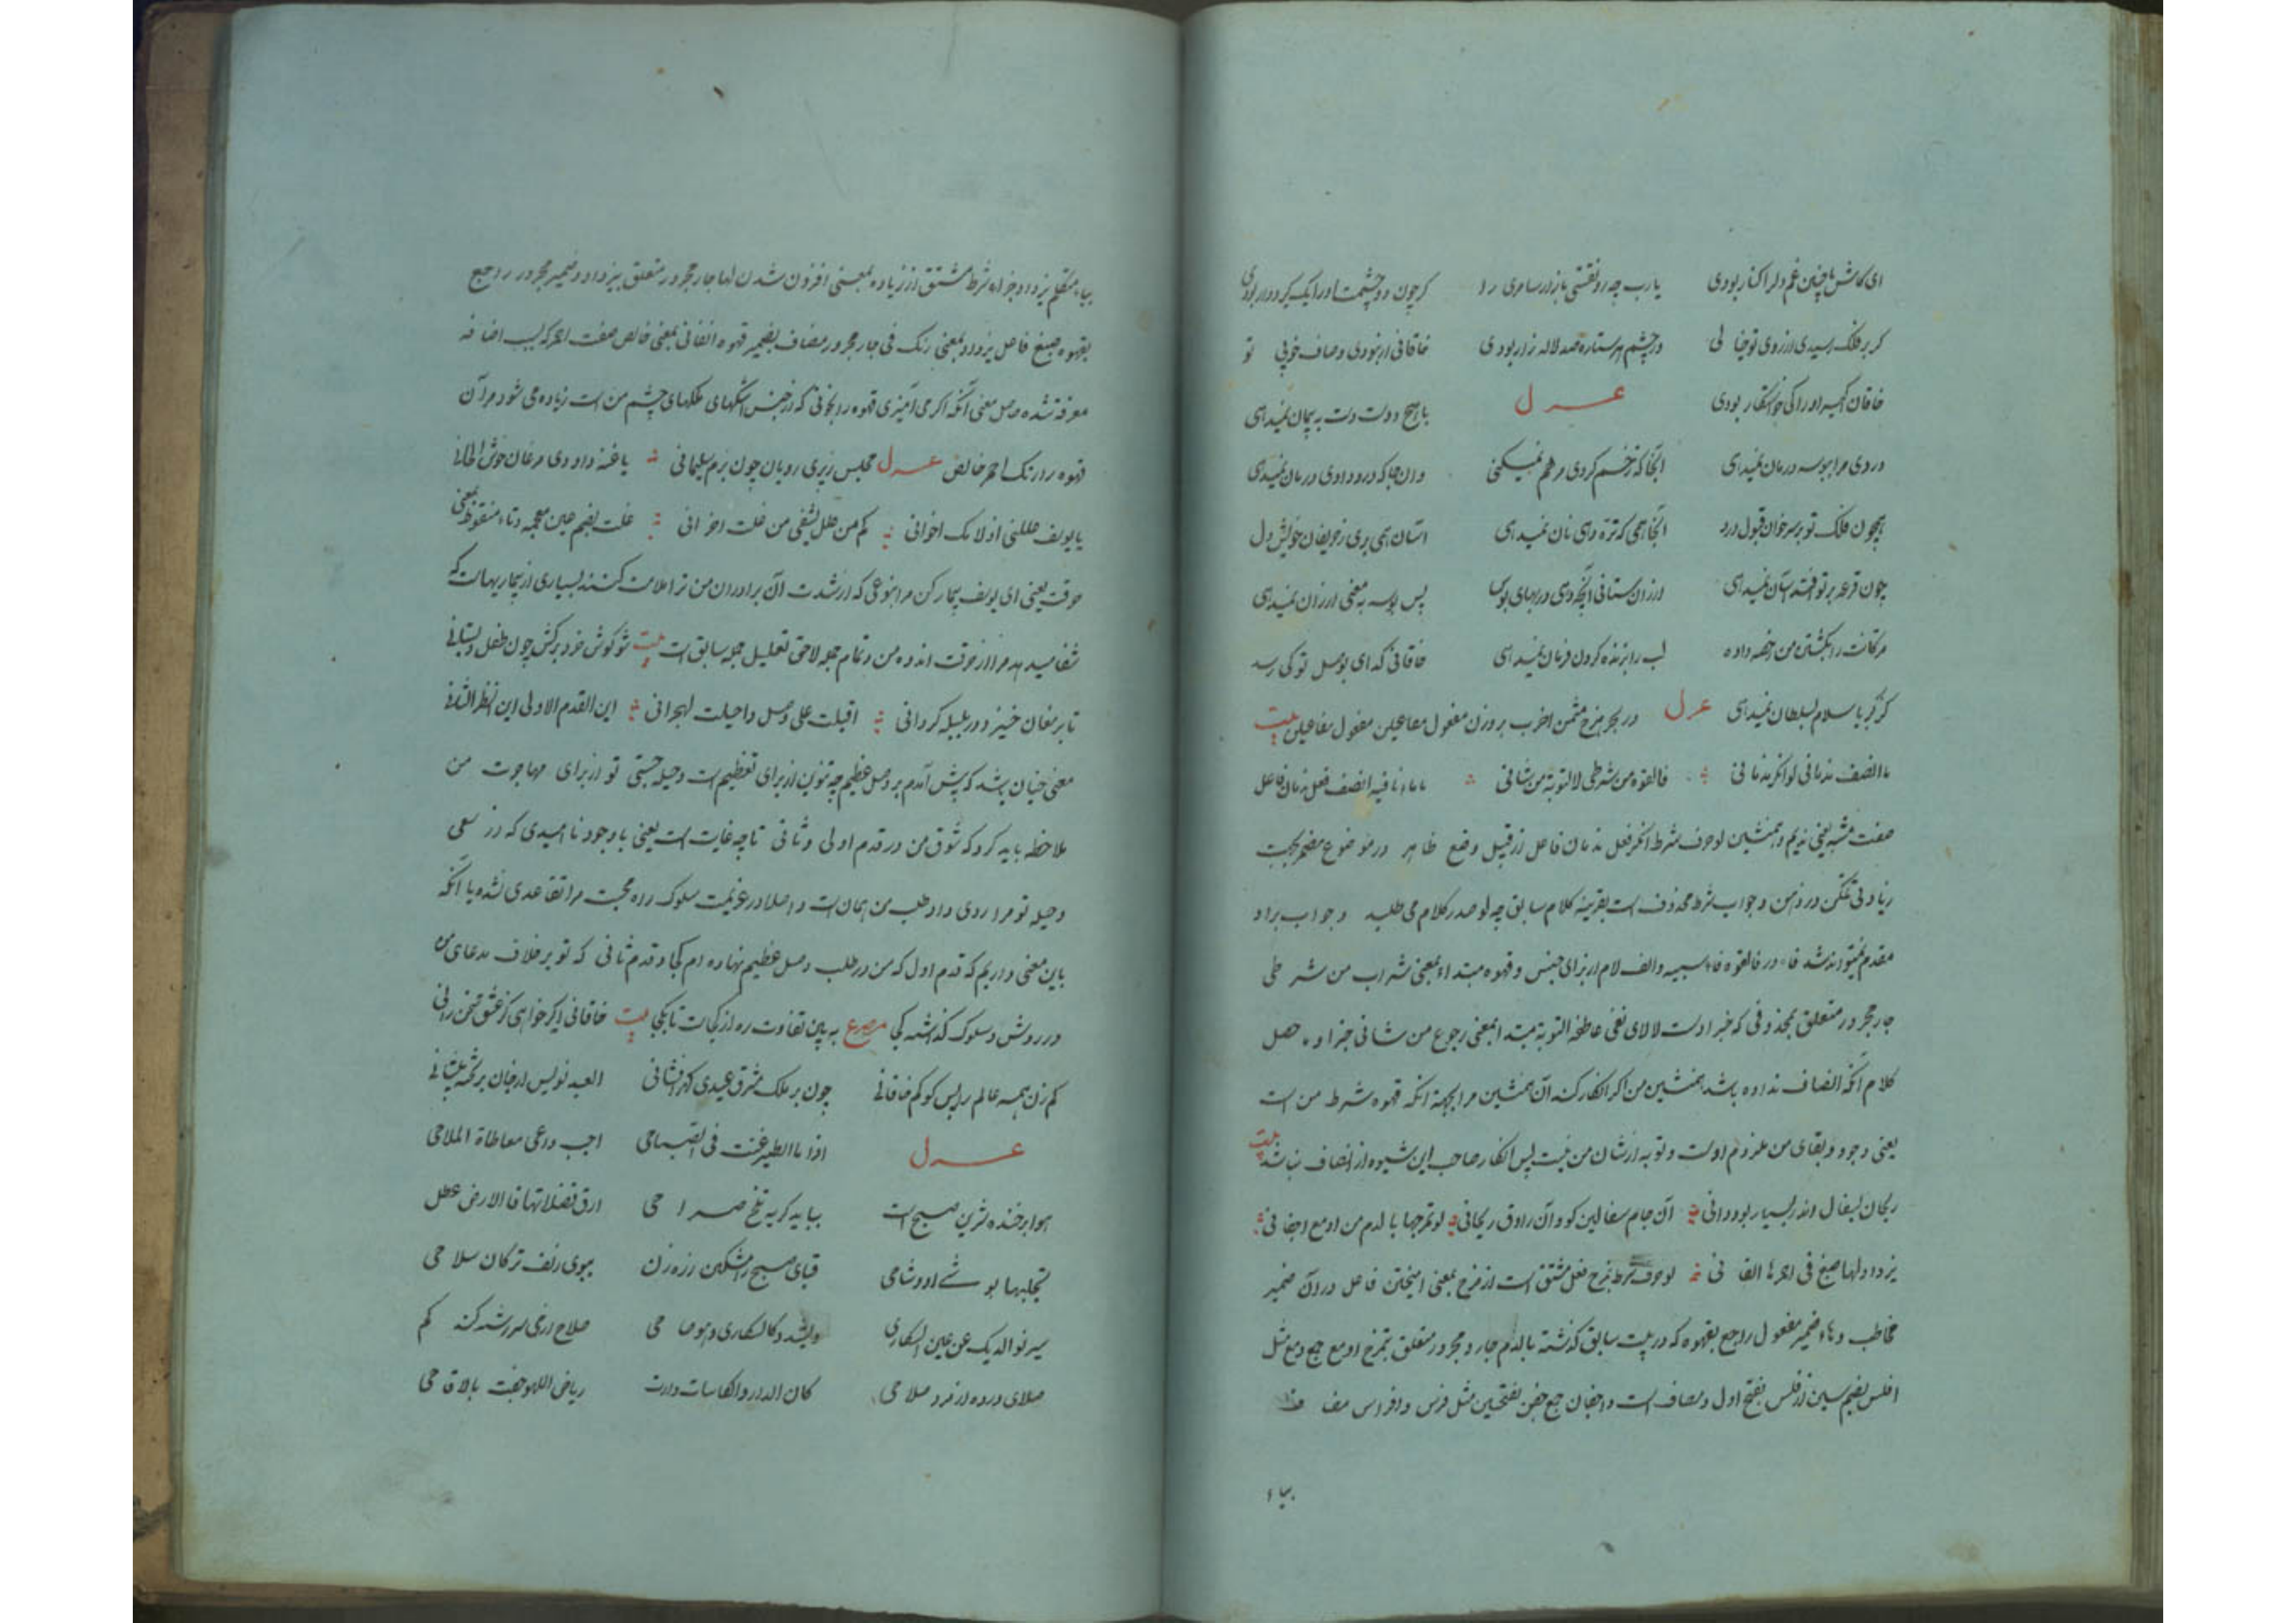 ای کاش با چنین غم دل را کنار بودی یارب چه رونقستی بازار سامری را کر چون دو چشمت اورا یک کردکار بودی
کر بر فلک رسیدی از روی تو خیالی در چشم هر ستاره صد لاله زار بودی خاقانی ار نبودی وصاف خوبی تو
خاقان اکبر اورا کی خواستکار بودی عزل با هیچ دوست دست به پیمان نمیدهی
دردی مرا ببوسه درمان نمیدهی آنجا که زخم کردی مرهم نمیکنی وانجا که درد دادی درمان نمیدهی
همچون فلک تو بر سر خوان قبول ورد آنجا همی که تره دهی نان نمیدهی آسان همی بری ز حریفان خویش دل
چون قرعه بر تو افتد آسان نمیدهی ارزان ستانی آنچه دهی در بهای بوس پس بوسه به معنی ارزان نمیدهی
مژکانت را بکشتن من رخصه داده لب را بزنده کردن فرمان نمیدهی خاقانی کدای بوصل تو کی رسد
کز کبر یا سلام بسلطان نمیدهی عزل در بحر هزج مثمن اخرب بر وزن مفعول مفاعیلن مفعول مفاعیلن بیت
ما انصف ندمانی لو انکر ندمانی فالقهوه من شرطی لا التوبة من شانی ما ماء نافیه انصف فعل ندمان فاعل
صفت مشبه یعنی ندیم و همنشین لو حرف شرط انکر فعل ندمان فاعل از قبیل وضع ظاهر در موضوع مضمر بجهت
زیادتی تمکن در ذهن و جواب شرط محذوف است بقرینه کلام سابق چه لو صدر کلام می طلبد و جواب براو
مقدم نمیتواند شد فاء در فالقهوه فاء سببیه والف لام از برای جنس و قهوه مبتداء بمعنی شراب من شرطی
جار مجرور متعلق بمحذوفی که خبر اوست لا لای نفی عاطفه التوبة مبتدا بمعنی رجوع من شانی خبر او حاصل
کلام آنکه انصاف نداده باشد همنشین من اکر انکار کند آن همنشین مرا بجهة آنکه قهوه شرط من است
یعنی وجود و بقای من ملزوم اوست و توبه از شان من نیست پس انکار صاحب این شیوه از انصاف نباشد بیت
ریحان بسفال اندر بسیار بود دانی آن جام سفالین کو وان راوق ریحانی لو تمزجها بالدم من ادمع اجفانی
یزداد لها صبغ فی احمرها القانی لو حرف شرط تمزج فعل مشتق است از مزج بمعنی امیختن فاعل در آن ضمیر
مخاطب وهاء ضمیر مفعول راجع بقهوه که در بیت سابق کذشته بالدم جار و مجرور متعلق بتمزج ادمع جمع دمع مثل
افلس بضم سین از فلس بفتح اول و مضاف است و اجفان جمع جفن بفتحین مثل فرس و افراس مضاف
بیاء
بیاء متکلم یزداد جزاء شرط مشتق از زیاده بمعنی افزون شدن لها جار مجرور متعلق بیزداد و ضمیر مجرور راجع
بقهوه صبغ فاعل یزداد بمعنی رنک فی جار مجرور مضاف بضمیر قهوه القانی بمعنی خالص صفت احمر که بسبب اضافه
معرفه شده حاصل معنی آنکه اکر می آمیزی قهوه را بخونی که از جنس اشکهای پلکهای چشم من است زیاده می شود مر آن
قهوه را رنک احمر خالص عزل مجلس زپری رویان چون بزم سلیمانی با غنه داودی مرغان خوش الحانی
یا یوسف عللنی ان لامک اخوانی کم من علل یشفی من غلت احزانی غلت بضم عین معجمه و تاء منقوط بمعنی
حرقت یعنی ای یوسف بیمار کن مرا بنوعی که از شدت آن برادران من ترا ملامت کنند بسیاری از بیماریهاست که
شفا میدهد مرا از حرقت اندوه من و تمام جمله لاحق تعلیل جمله سابق است بیت شو کوش خرد برکش چون طفل دبستانی
تا بر مغان خیز و دور بلبله کردانی اقبلت علی وصل و احیلت لهجرانی این القدم الاولی این النظر الثانی
معنی چنان باشد که پیش آمدم بر وصل عظیم چه تنوین از برای تعظیم است و حیله جستی تو از برای مهاجرت من
ملاحظه باید کرد که شوق من در قدم اولی و ثانی تا چه غایت است یعنی با وجود نا امیدی که در سعی
وحیله تو مرا روی داد طلب من همان است و اصلا در عزیمت سلوک راه محبت مرا تقاعدی نشده یا آنکه
باین معنی داریم که قدم اول که من در طلب وصل عظیم نهاده ام کجا و قدم ثانی که تو بر خلاف مدعای من
در روش و سلوک کذاشته کجا مصرع به بین تفاوت ره از کجاست تا بکجا بیت خاقانی اکر خواهی کز عشق سخن رانی
کم زن همه عالم را پس کو کم خاقانی چون بر ملک مشرق عیدی کهر افشانی العبد نویس از جان بر تخته پیشانی
عزل اذا ما الطیر غنت فی الصباحی اجب داعی معاطاة الملاحی
هوا پر خنده شیرین صبح است بباید کریه تلخ صراحی ارق فضلاتها فالارض عطل
تجلیها بوشی او وشاحی قبای صبح را مشکین زره زن ببوی زلف ترکان سلاحی
سیرنو الدیک عن عین السکاری وینشد کالسکاری و هو صاحی صلاح از می سررشته کند کم
صلای درده از مرد صلاحی کان الدار والکاسات دارت ریاض اللهو حفت بالاقاحی